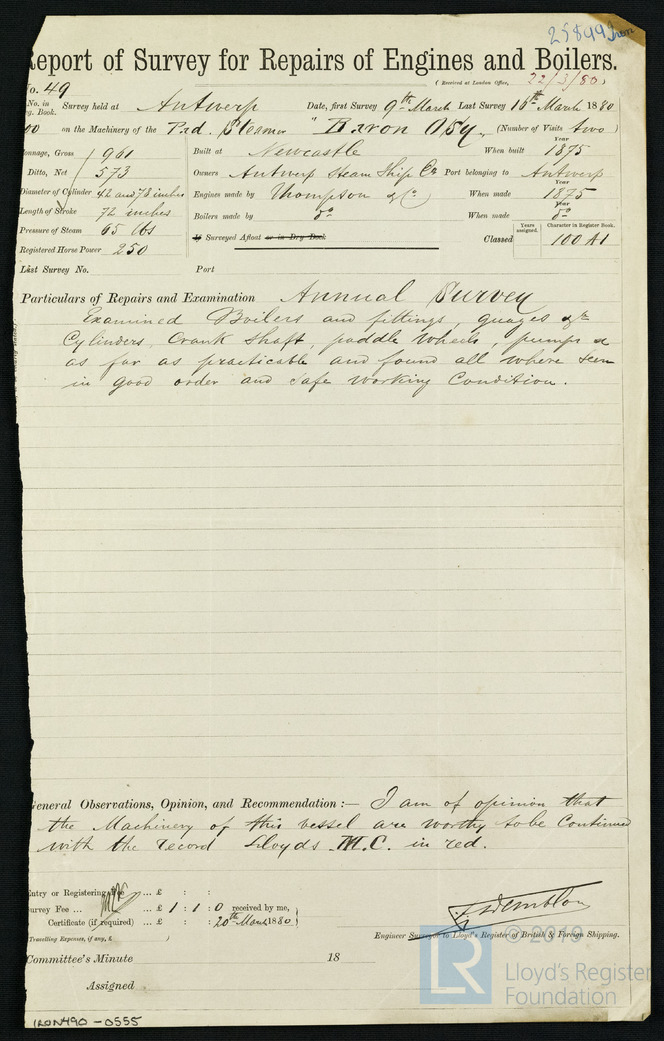 25899 Iron
Report of Survey for Repairs of Engines and Boilers.
(Received at London Office, 22/3/80)
No. 49
No. in Reg. Book. Survey held at Antwerp Date, first Survey 9th March Last Survey 16th March 1880
on the Machinery of the Pad. Steamer "Baron Osy" (Number of Visits two)
Tonnage, Gross 961 Built at Newcastle When built Year 1875
Ditto, Net 573 Owners Antwerp Steam Ship Co Port belonging to Antwerp
Diameter of Cylinder 42 and 78 inches Engines made by Thompson & Co When made Year 1875
Length of Stroke 72 inches Boilers made by Do When made Year Do
Pressure of Steam 65 lbs If Surveyed Afloat or in Dry Dock Classed Years assigned. Character in Register Book. 100 A1
Registered Horse Power 250
Last Survey No. Port
Particulars of Repairs and Examination Annual Survey
Examined Boilers and fittings, guages &c
Cylinders, Crank Shaft, paddle wheels, pumps &
as far as practicable and found all where seen
in good order and safe working Condition.
General Observations, Opinion, and Recommendation :— I am of opinion that
the Machinery of this vessel are worthy to be Continued
with the record Lloyds M.C. in red.
Entry or Registering Fee ... £ : :
Survey Fee ... £ 1 : 1 : 0 received by me,
Certificate (if required) ... £ : : 20th March 1880
(Travelling Expenses, if any, £ )
Engineer Surveyor to Lloyd's Register of British & Foreign Shipping.
Committee's Minute 18
Assigned
© 2019
LR Lloyd's Register
Foundation
IRON490-0555